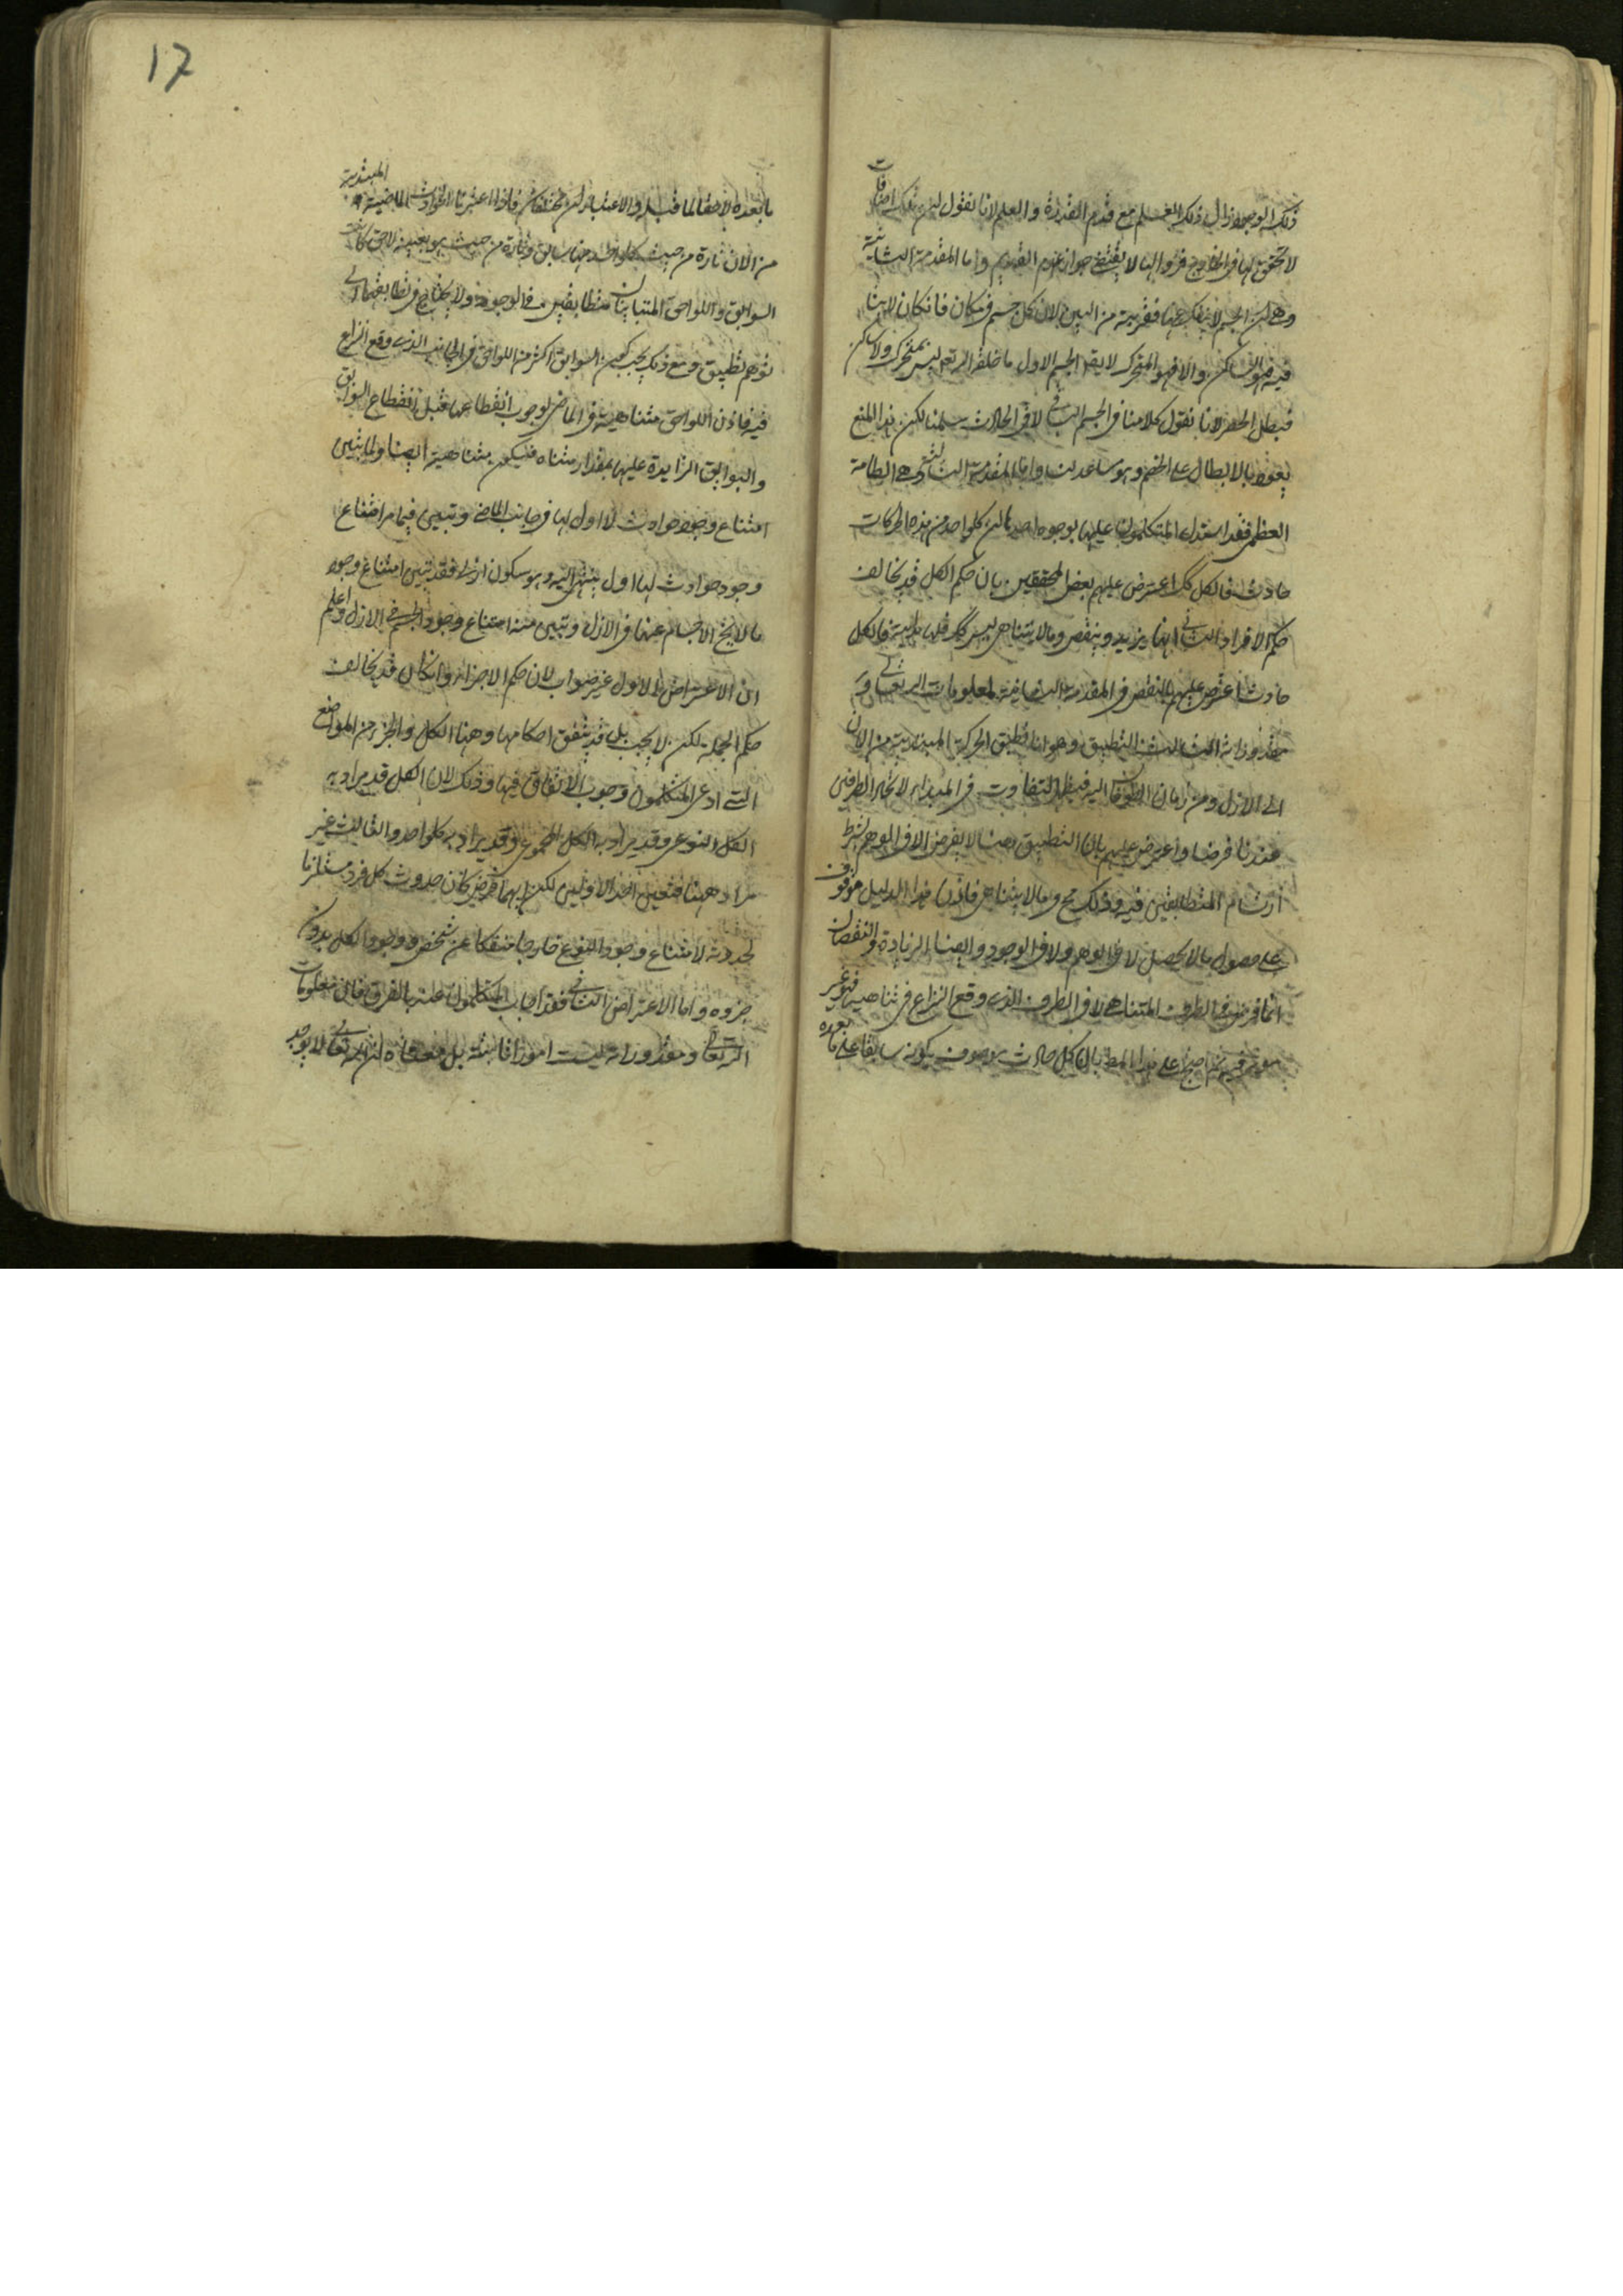 ذلك الوجود زال ذلك العلم مع قدم القدرة والعلم لانا نقول ليس تلك اضافات
لا تحقق لها في الخارج فزوالها لا يقتضي جواز عدم القديم واما المقدمة الثانية
وهي ان الجسم لا ينفك عنها فقريبة من البين لان كل جسم في مكان فان كان لابثا
فيه فهو الساكن والا فهو المتحرك لا يقال الجسم الاول ما خلقه الله تعه ليس بمتحرك ولا ساكن
فبطل الحصر لانا نقول كلامنا في الجسم الباقي لا في الحادث سلمنا لكن هذا المنع
يعود بالابطال على الخصم وهو مساعدتنا واما المقدمة الثالثة وهي الطامة
العظمى فقد استدل المتكلمون عليها بوجوه احدها ان كلواحد من هذه الحركات
حادث فالكل كك اعترض عليهم بعض المحققين بان حكم الكل قد يخالف
حكم الافراد الثاني انها يزيد وينقص وما لا يتناهى ليس كك فلها بداية فالكل
حادث اعترض عليهم بالنقض في المقدمة الثانية بمعلومات الله تعالى و
مقدوراته الثالث التطبيق وهو انا نطبق الحركة المبتدئة من الآن
الى الازل ومن زمان الطوفان اليه فيظهر التفاوت في المبدأ لاتحاد الطرفين
عندنا فرضا واعترض عليهم بان التطبيق هنا لا يفرض الا في الوهم بشرط
ارتسام المتطابقين فيه وذلك مح وما لا يتناهى فاذن هذا الدليل موقوف
على حصول ما لا يحصل لا في الوهم ولا في الوجود وايضا الزيادة والنقصان
انما فرض في الطرف المتناهي لا في الطرف الذي وقع النزاع في تناهيه فهو غير
موثر فيه ثم احتج على هذا المط بان كل حادث موصوف بكونه سابقا على ما بعده
١٦
ما بعده لاحقا لما قبله والاعتباران مختلفان فاذا اعتبرنا الحوادث الماضية المبتدئة
من الآن تارة من حيث كلواحد منها سابق وتارة من حيث هو بعينه لاحق كانت
السوابق واللواحق المتباينان متطابقين في الوجود ولا يحتاج في تطابقهما الى
توهم تطبيق ومع ذلك يجب كون السوابق اكثر من اللواحق في الجانب الذي وقع النزاع
فيه فاذن اللواحق متناهية في الماضي لوجوب انقطاعها قبل انقطاع السوابق
والسوابق الزايدة عليها بمقدار متناه فيكون متناهية ايضا ولما تبين
امتناع وجود حوادث لا اول لها في جانب الماضي وتبين فيما مر امتناع
وجود حوادث لها اول ينتهى اليه وهو سكون ازلي فقد تبين امتناع وجود
ما لا يخ الاجسام عنها في الازل وتبين منه امتناع وجود الجسم في الازل واعلم
ان الاعتراض الاول غير صواب لان حكم الاجزاء وان كان قد يخالف
حكم الجملة لكن لا يجب بل قد يتفق احكامها وهنا الكل والجزء من المواضع
التي ادعى المتكلمون وجوب الاتفاق فيها وذلك لان الكل قد يراد به
الكل النوعي وقد يراد به الكل المجموعي وقد يراد به كلواحد والثالث غير
مراد ههنا فتعين احد الاولين لكن ايهما فرض كان حدوث كل فرد مستلزما
لحدوثه لامتناع وجود النوع خارجا منفكا عن شخص ووجود الكل بدون
جزوه واما الاعتراض الثاني فقد اجاب المتكلمون عنه بالفرق فان معلومات
الله تعالى ومقدوراته ليست امورا ثابتة بل معناه ان الله تعالى لا يوجد